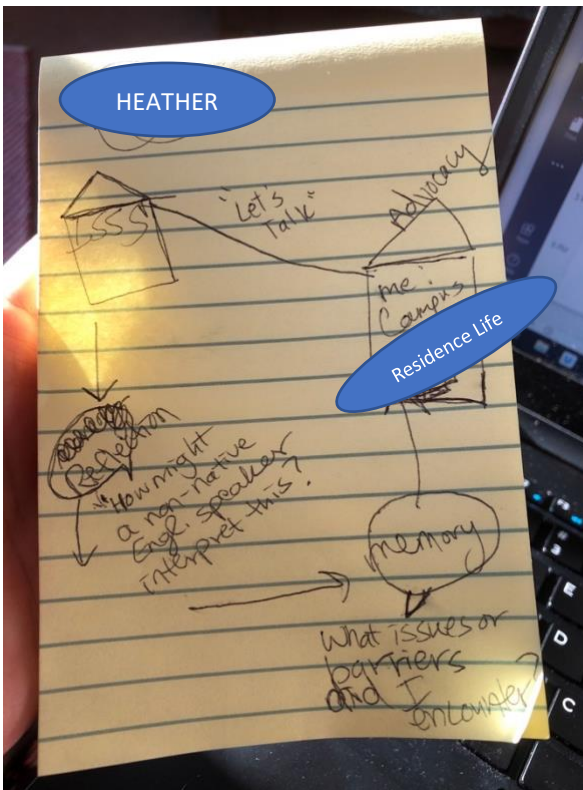 HEATHER
ISSS
"Let's
Talk"
Advocacy
me:
Campus
Residence Life
Reflection
"How might
a non-native
Engl. speaker
interpret this?
memory
What issues or
barriers
did I
encounter?
E
D
C